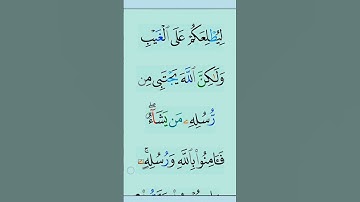 لِيُطْلِعَكُمْ عَلَى ٱلْغَيْبِ
وَلَٰكِنَّ ٱللَّهَ يَجْتَبِى مِن
رُّسُلِهِۦ مَن يَشَآءُ ۖ
فَـَٔامِنُوا۟ بِٱللَّهِ وَرُسُلِهِۦ ۚ